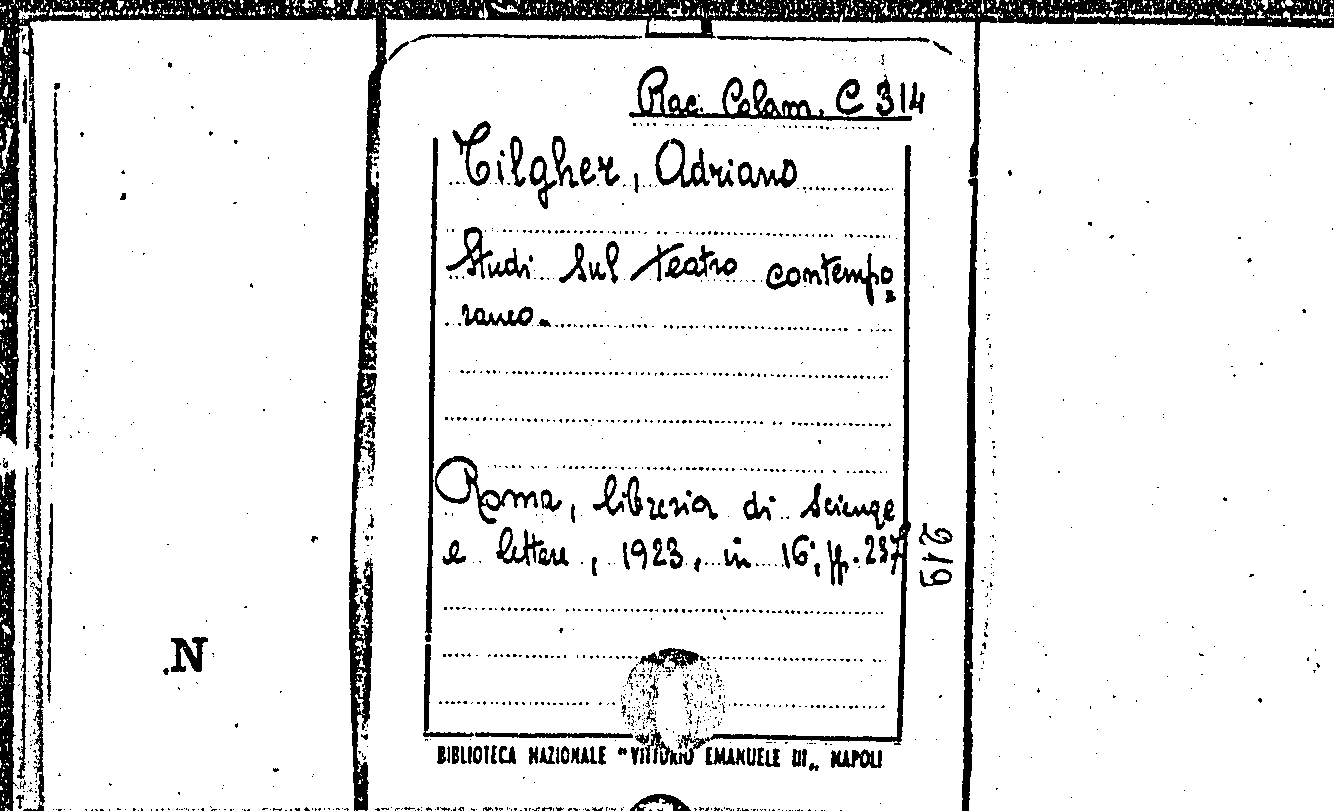 Rac. Colam. C 314
Tilgher, Adriano
Studi sul teatro contempo=
raneo.
Roma, libreria di Scienze
e lettere, 1923, in 16°, pp. 237
219
.N
BIBLIOTECA NAZIONALE "VITTORIO EMANUELE III„ NAPOLI